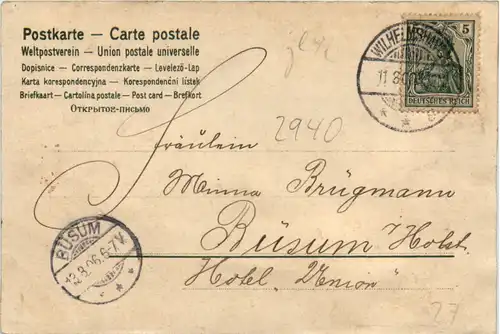 Postkarte — Carte postale
Weltpostverein — Union postale universelle
Dopisnice — Correspondenzkarte — Levelező-Lap
Karta korespondencyjna — Korespondenční lístek
Briefkaart — Cartolina postale — Post card — Brefkort
Открытое-письмо
5
DEUTSCHES REICH
2940
Fräulein
Minna Brügmann
Büsum i/Holst.
Hotel „Union"
BÜSUM
12.8.06.6-7V
27